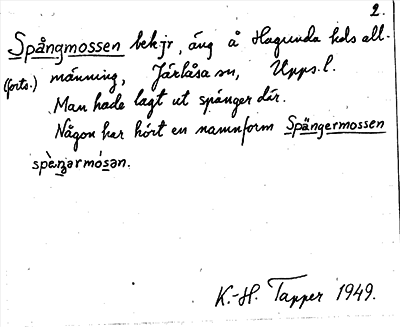 2.
Spångmossen bekjr, äng å Hagunda hds all-
(forts.) männing, Järlåsa sn, Upps.l.
Man hade lagt ut spänger där.
Någon har hört en namnform Spängermossen
spèŋərmósən.
K.-H. Tapper 1949.